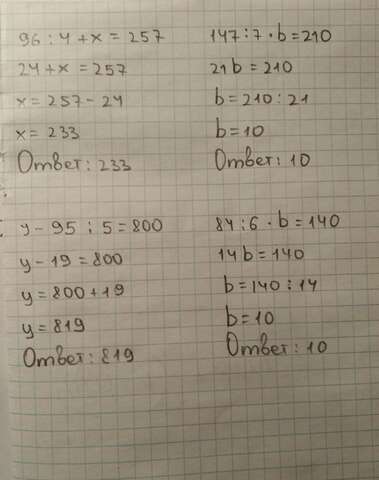 96 : 4 + x = 257
24 + x = 257
x = 257 - 24
x = 233
Ответ: 233
147 : 7 · b = 210
21 b = 210
b = 210 : 21
b = 10
Ответ: 10
y - 95 : 5 = 800
y - 19 = 800
y = 800 + 19
y = 819
Ответ: 819
84 : 6 · b = 140
14 b = 140
b = 140 : 14
b = 10
Ответ: 10